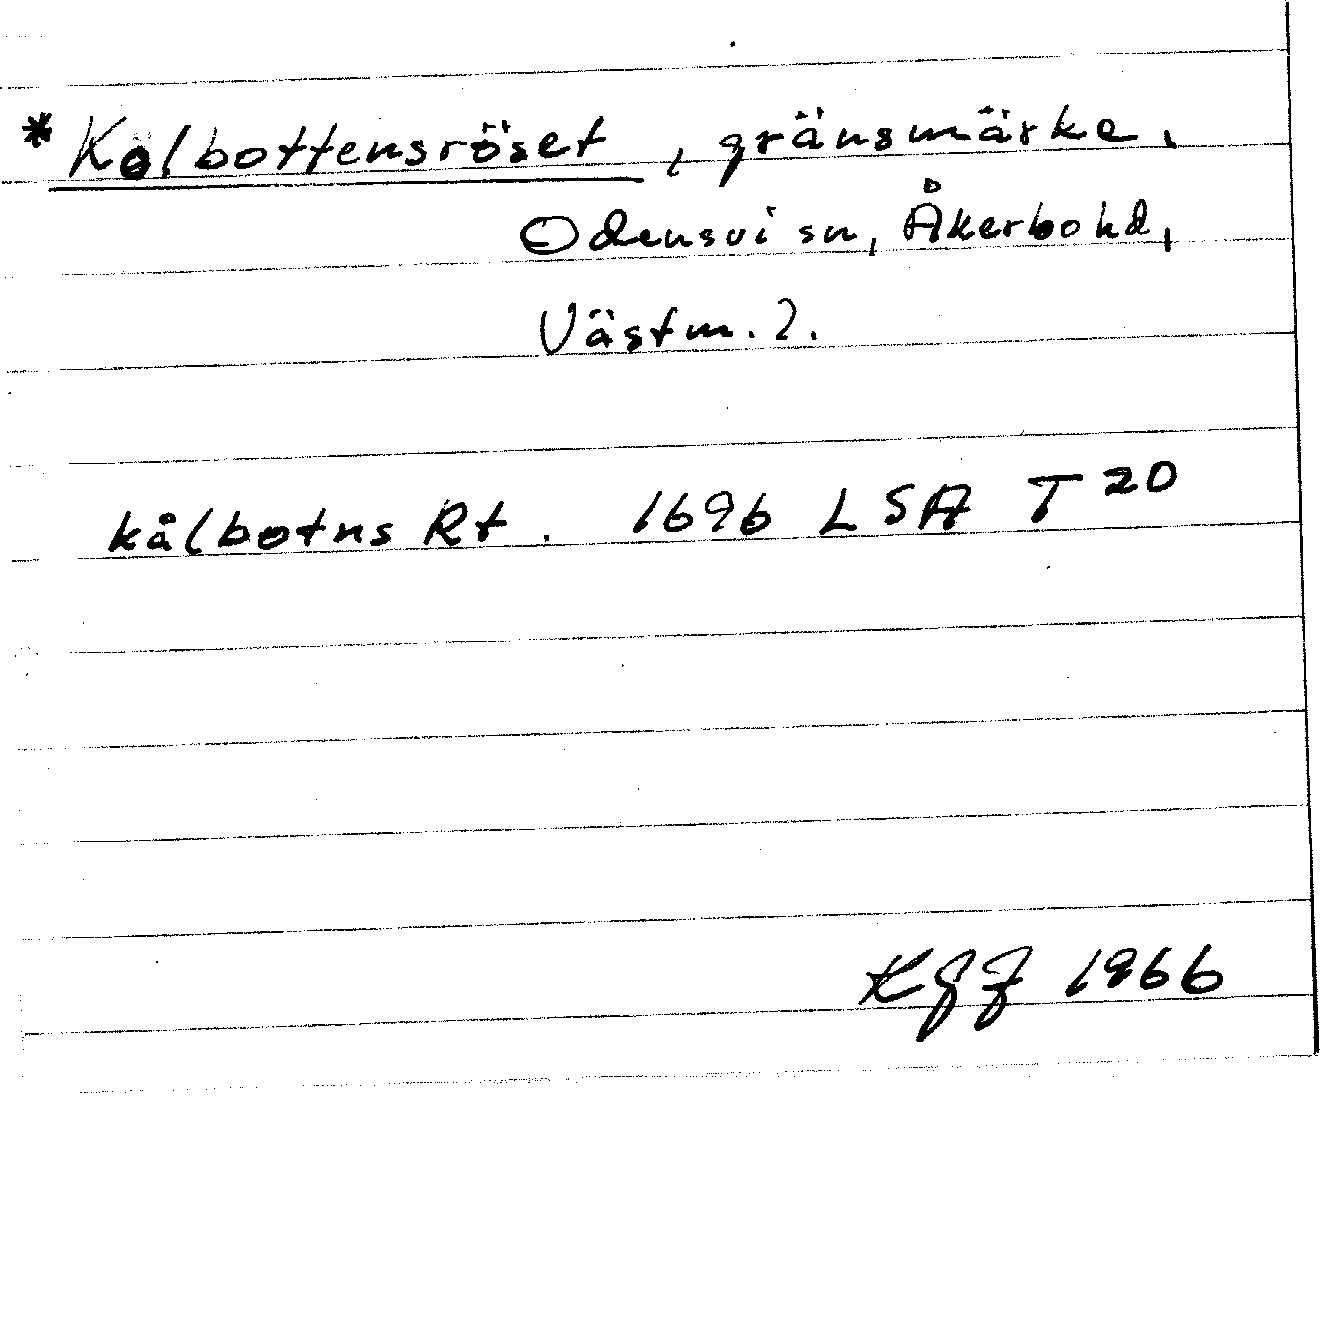 * Kolbottensröset, gränsmärke,
Odensvi sn, Åkerbo hd,
Västm. l.
kålbotns Rt. 1696 LSA T 20
KGF 1966